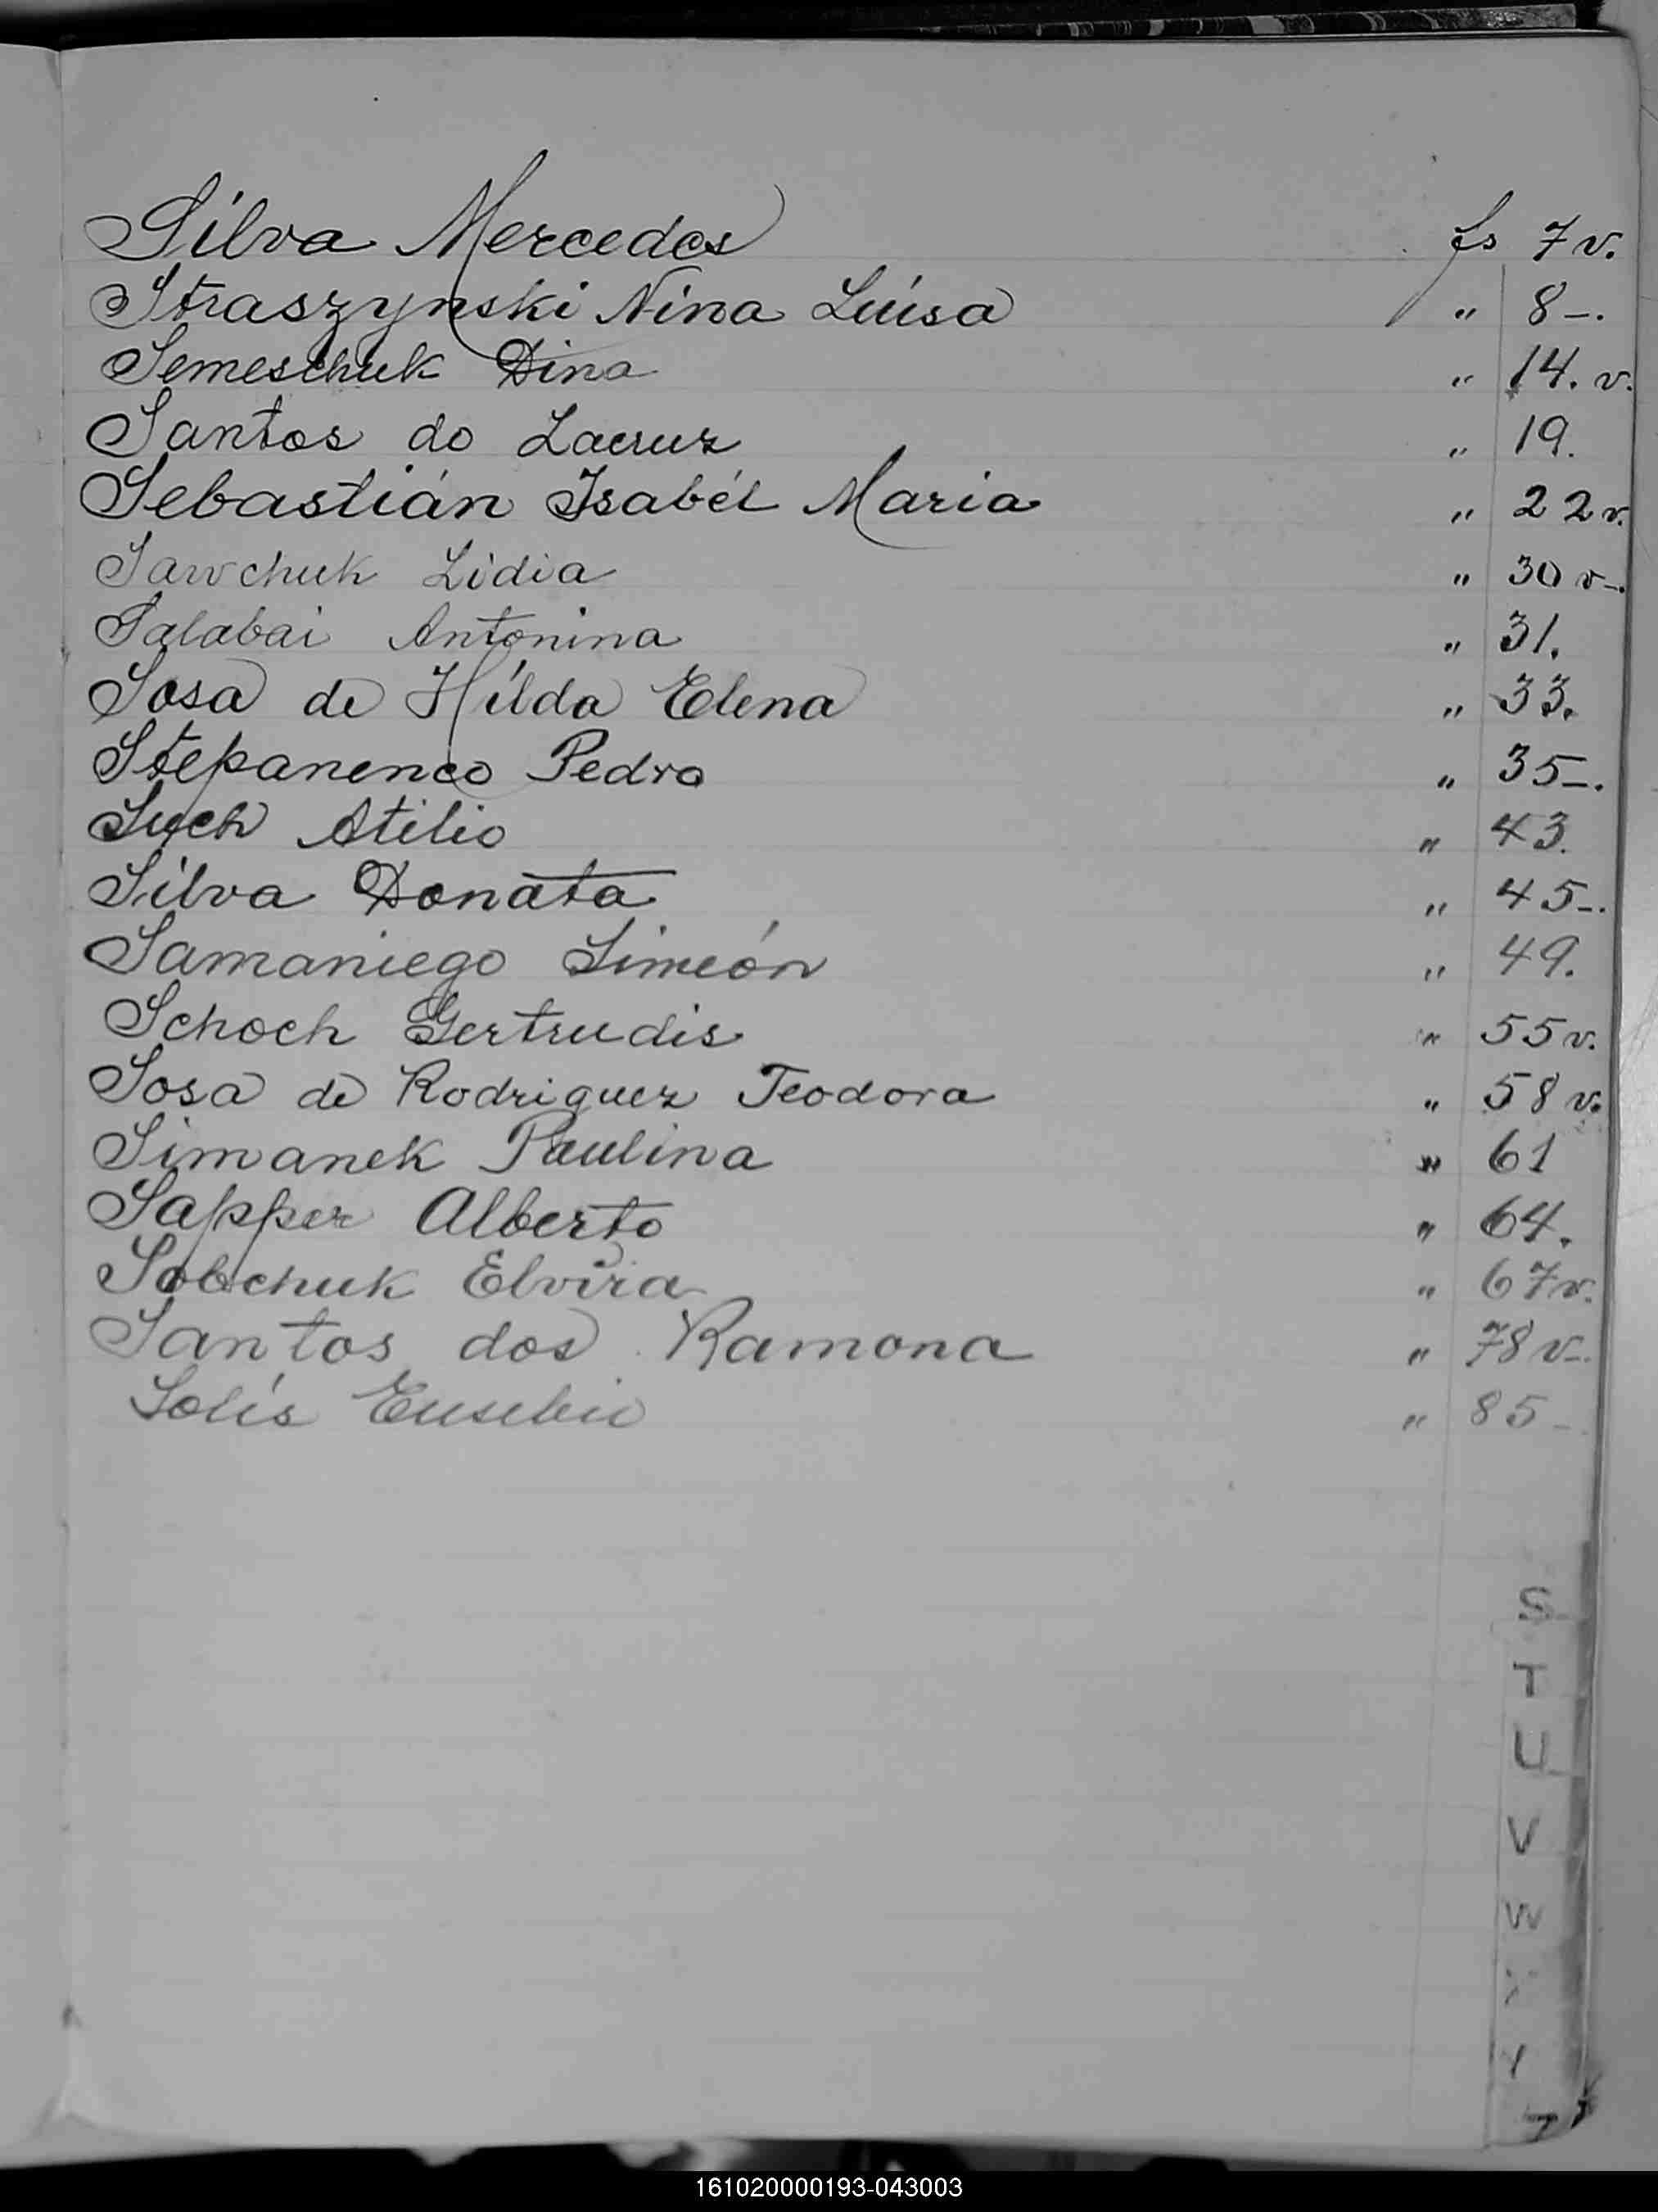 Silva Mercedes fs 7 v.
Straszynski Nina Luisa " 8-.
Semeschuk Dina " 14. v.
Santos do Lacruz " 19.
Sebastián Isabél Maria " 22 v.
Sawchuk Lidia " 30 v-.
Salabai Antonina " 31.
Sosa de Hilda Elena " 33.
Stepanenco Pedro " 35-.
Such Atilio " 43.
Silva Donata " 45-.
Samaniego Simeón " 49.
Schoch Gertrudis " 55 v.
Sosa de Rodriguez Teodora " 58 v.
Simanek Paulina " 61
Sapper Alberto " 64.
Sobchuk Elvira " 67 v.
Santos dos Ramona " 78 v-.
Solís Eusebio " 85-
S
T
U
V
W
X
Y
Z
161020000193-043003